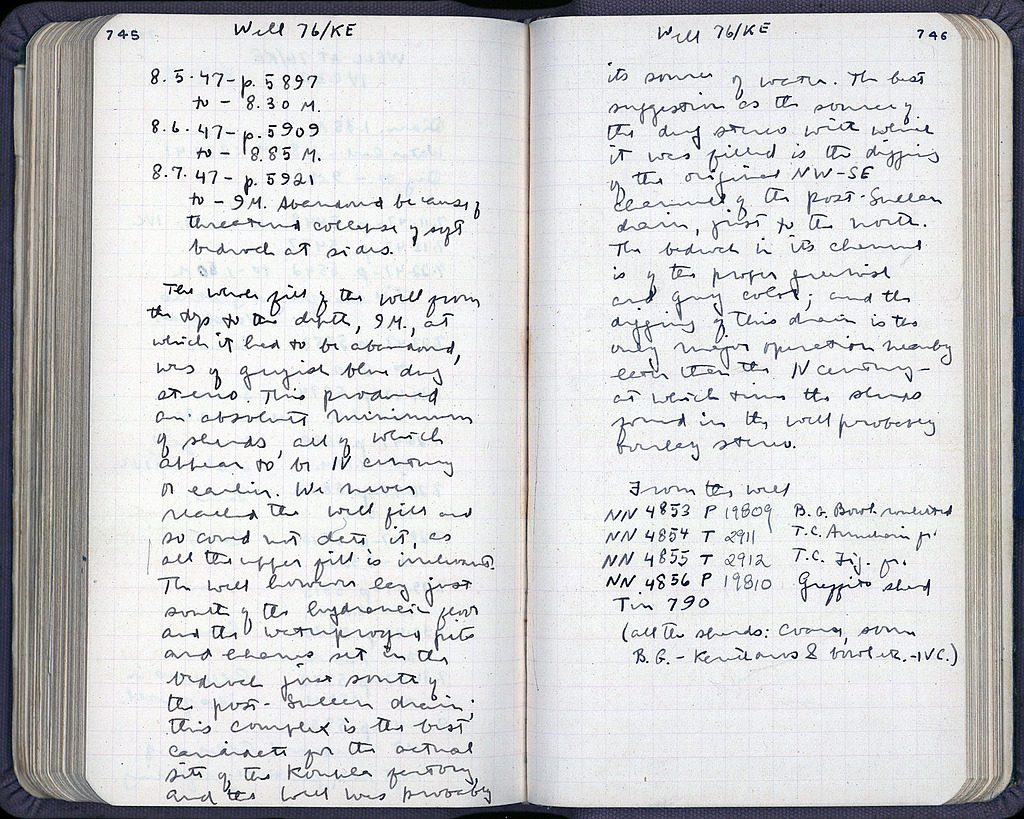 745
Well 76/KE
8.5.47- p. 5897
to - 8.30 M.
8.6.47- p. 5909
to - 8.85 M.
8.7.47- p. 5921
to - 9M. Abandoned because of
threatened collapse of soft
bedrock at sides.
The whole fill of the well from
the top to the depth, 9M., at
which it had to be abandoned,
was of grayish blue dug
stereo. This produced
an absolute minimum
of sherds, all of which
appear to be IV century
or earlier. We never
reached the well fill and
so could not date it, as
all the upper fill is irrelevant.
The well however lay just
south of the hydraulic floor
and the waterproofed pits
and channels set in the
bedrock just south of
the post-Sullan drain;
this complex is the best
candidate for the actual
site of the factory,
and the well was probably
746
Well 76/KE
its source of water. The best
suggestion as the source of
the dug stereo with which
it was filled is the digging
of the original NW-SE
channel of the post-Sullan
drain, just to the north.
The bedrock in its channel
is of the proper greenish
and gray color; and the
digging of this drain is the
only major operation nearby
later than the IV century -
at which time the sherds
found in the well probably
became stereo.
From the well
NN 4853 P 19809 B.G. Bowl
NN 4854 T 2911 T.C. fr.
NN 4855 T 2912 T.C. Fig. fr.
NN 4856 P 19810 Graffito sherd
Tin 790
(all the sherds: coarse, some
B.G. - Kantharos & bowl etc. - IVC.)